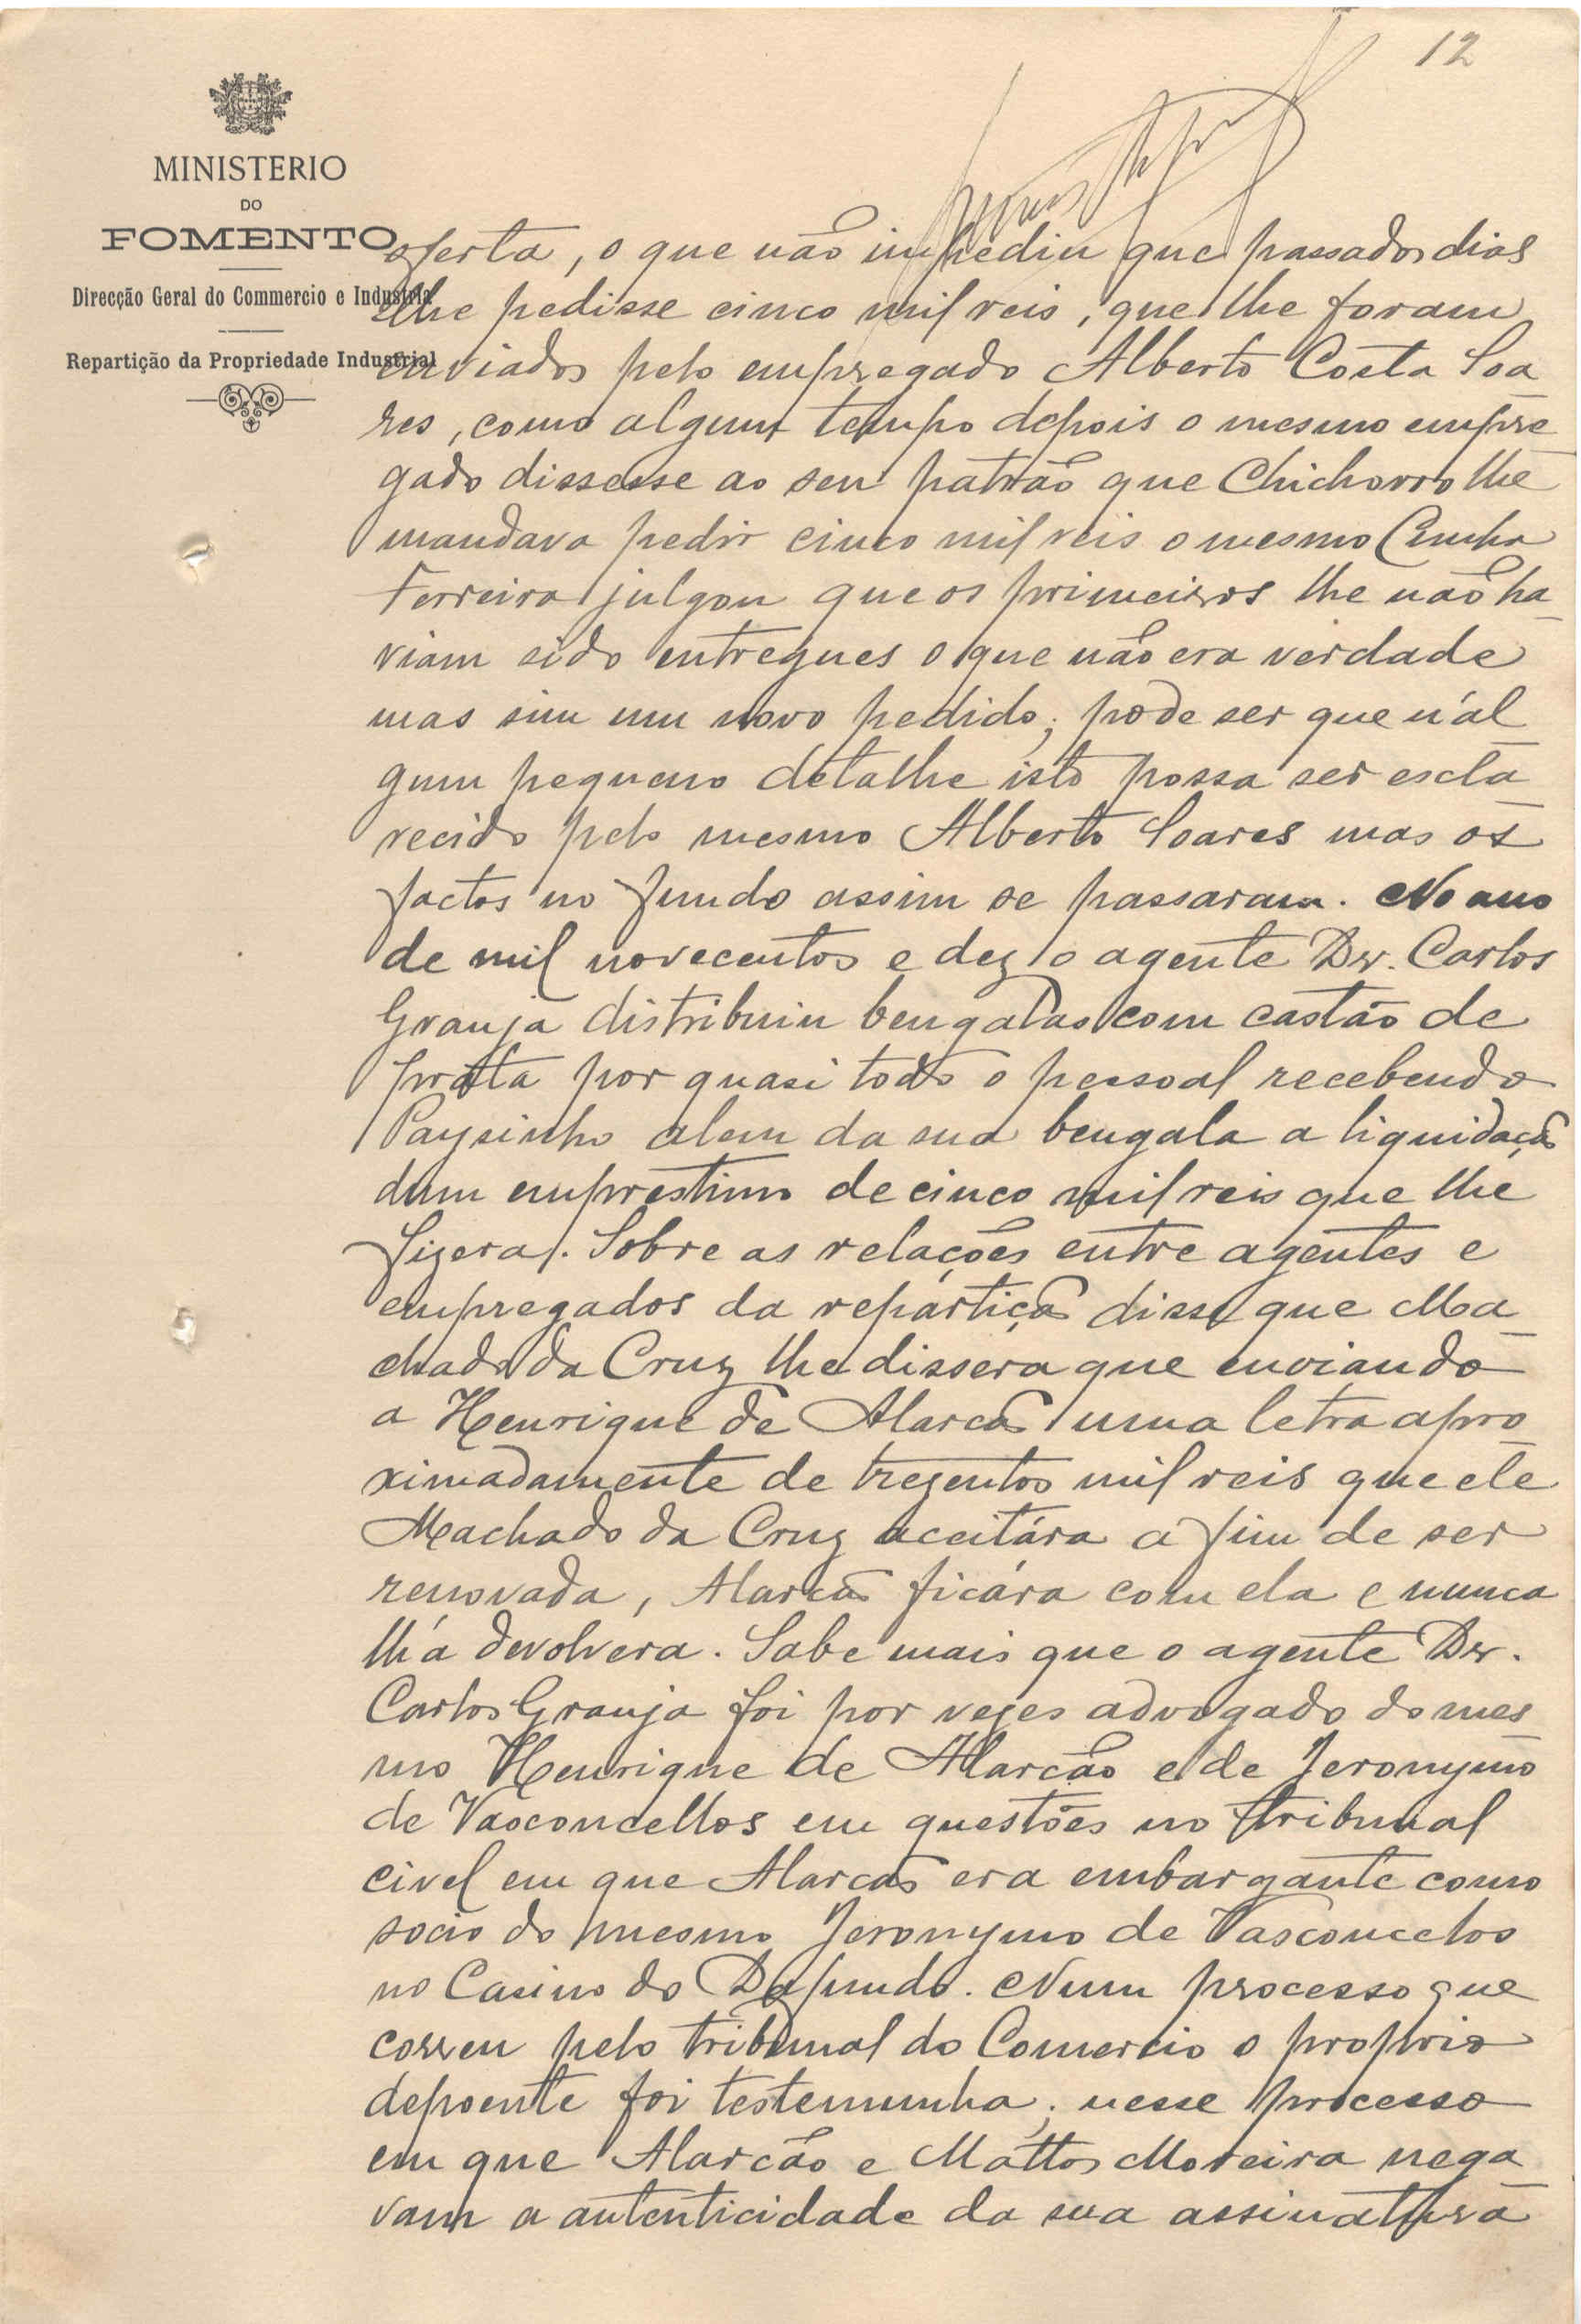 12
MINISTERIO
DO
FOMENTO
Direcção Geral do Commercio e Industria
Repartição da Propriedade Industrial
oferta, o que não impediu que passados dias
lhe pedisse cinco mil reis, que lhe foram
enviados pelo empregado Alberto Costa Soa
res, como algum tempo depois o mesmo empre
gado dissesse ao seu patrão que Chichorro lhe
mandava pedir cinco mil reis o mesmo Cunha
Ferreira julgou que os primeiros lhe não ha
viam sido entregues o que não era verdade
mas sim um novo pedido; pode ser que n'al
gum pequeno detalhe isto possa ser escla
recido pelo mesmo Alberto Soares mas os
factos no fundo assim se passaram. No ano
de mil novecentos e dez o agente Dr. Carlos
Granja distribuiu bengalas com castão de
prata por quasi todo o pessoal recebendo
Paysinho alem da sua bengala a liquidação
dum emprestimo de cinco mil reis que lhe
fizera. Sobre as relações entre agentes e
empregados da repartição disse que Ma
chado da Cruz lhe dissera que enviando
a Henrique de Alarcão uma letra apro
ximadamente de trezentos mil reis que ele
Machado da Cruz aceitára a fim de ser
renovada, Alarcão ficára com ela e nunca
lh'a devolvera. Sabe mais que o agente Dr.
Carlos Granja foi por vezes advogado do mes
mo Henrique de Alarcão e de Jeronymo
de Vasconcellos em questões no tribunal
civel em que Alarcão era embargante como
socio do mesmo Jeronymo de Vasconcelos
no Casino do Dafundo. Num processo que
correu pelo tribunal do Comercio o proprio
depoente foi testemunha; nesse processo
em que Alarcão e Mattos Moreira nega
vam a autenticidade da sua assinatura